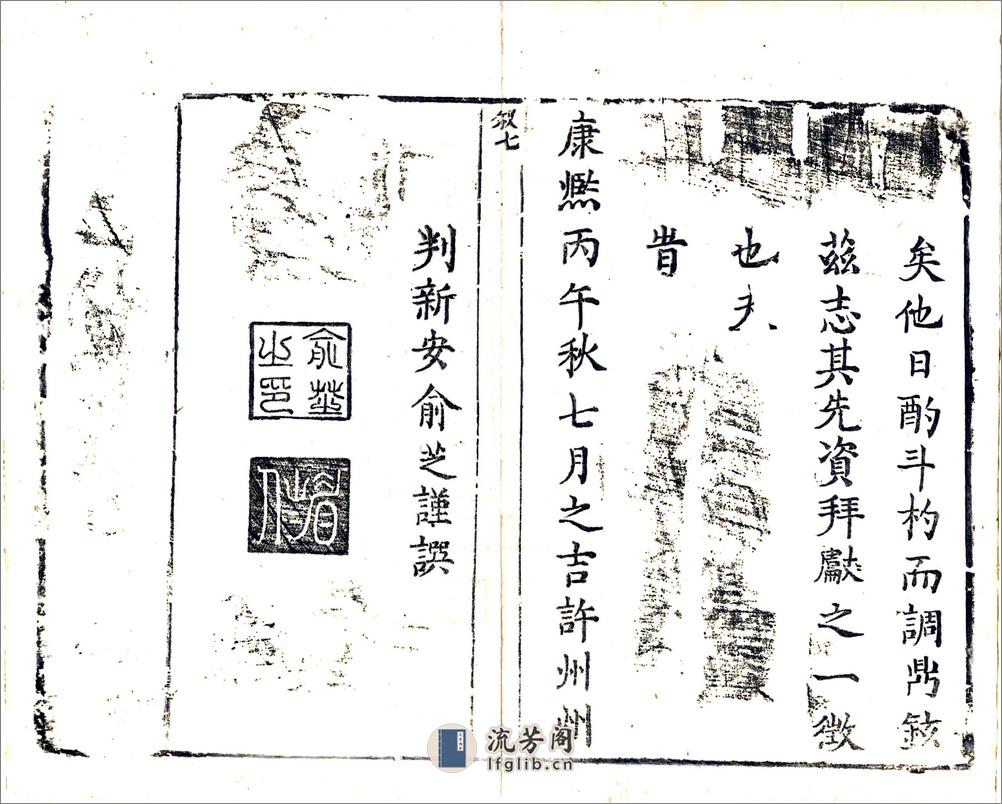 矣他日酌斗杓而調鼎鉉
茲志其先資拜獻之一徵
也夫
旹
康熈丙午秋七月之吉許州州
判新安俞芝謹譔
敘七
俞芝
之印
流芳阁
lfglib.cn